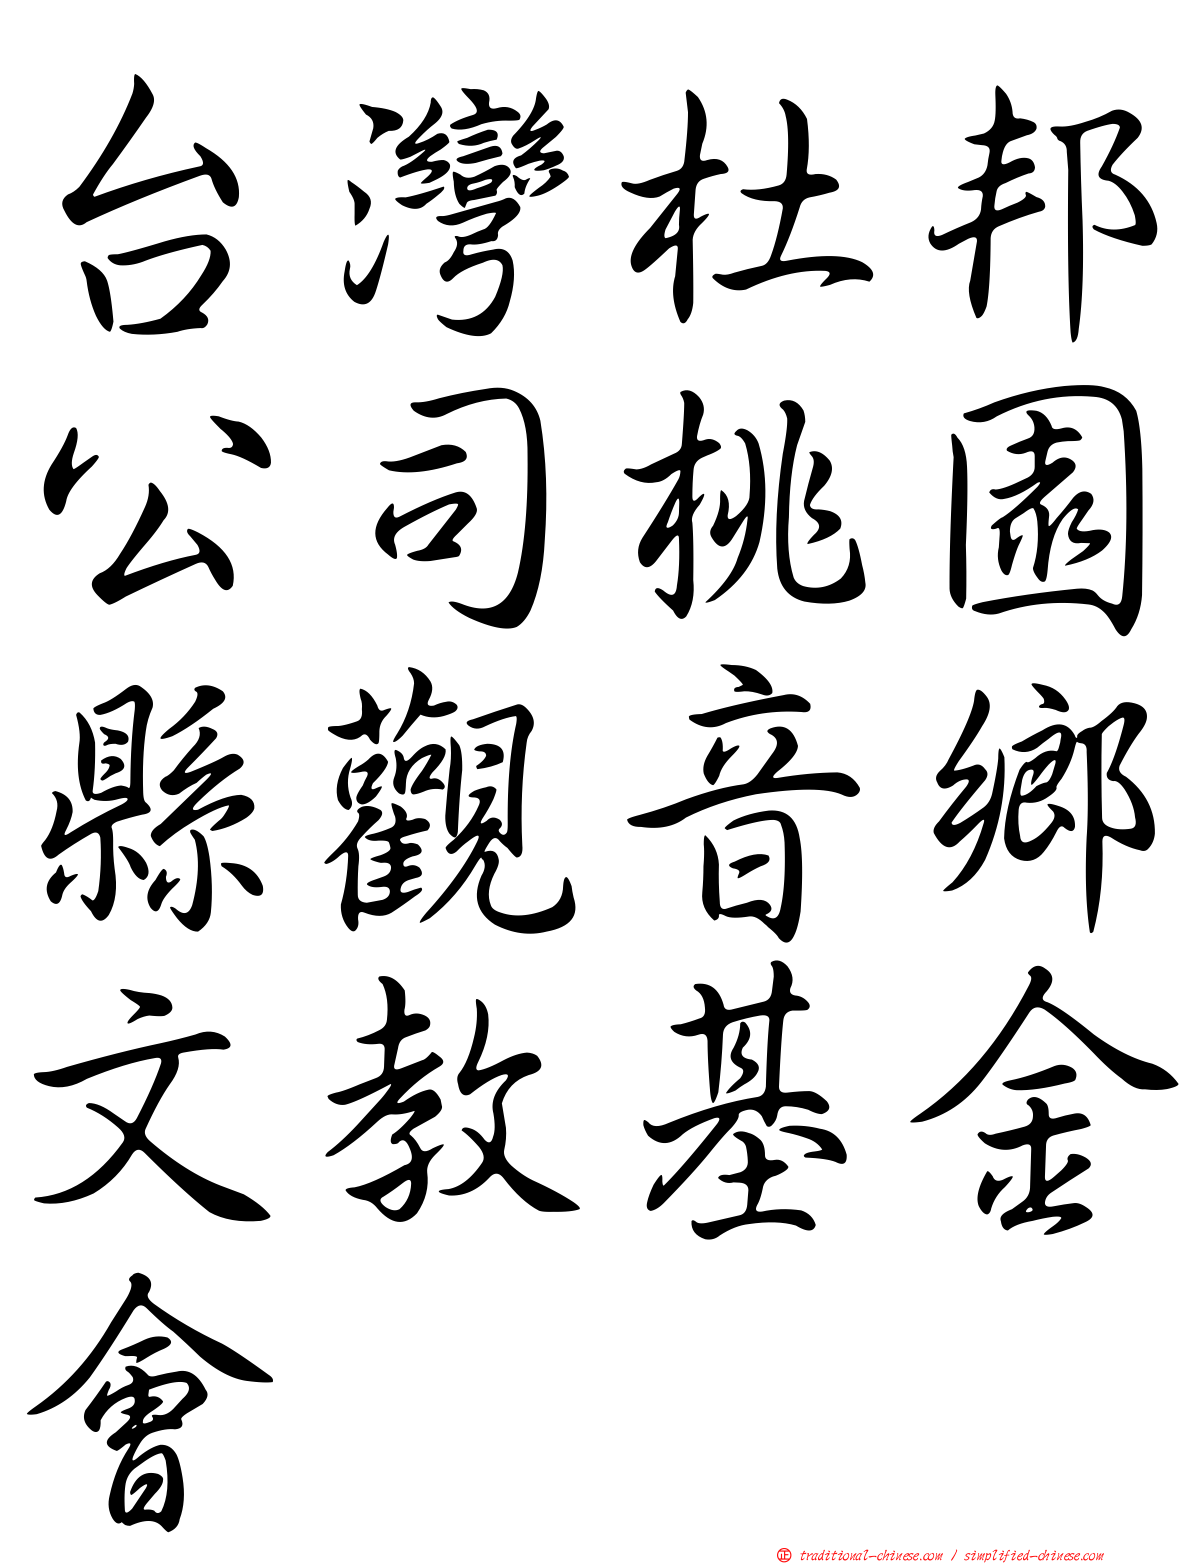 台灣杜邦
公司桃園
縣觀音鄉
文教基金
會
正 traditional-chinese.com / simplified-chinese.com